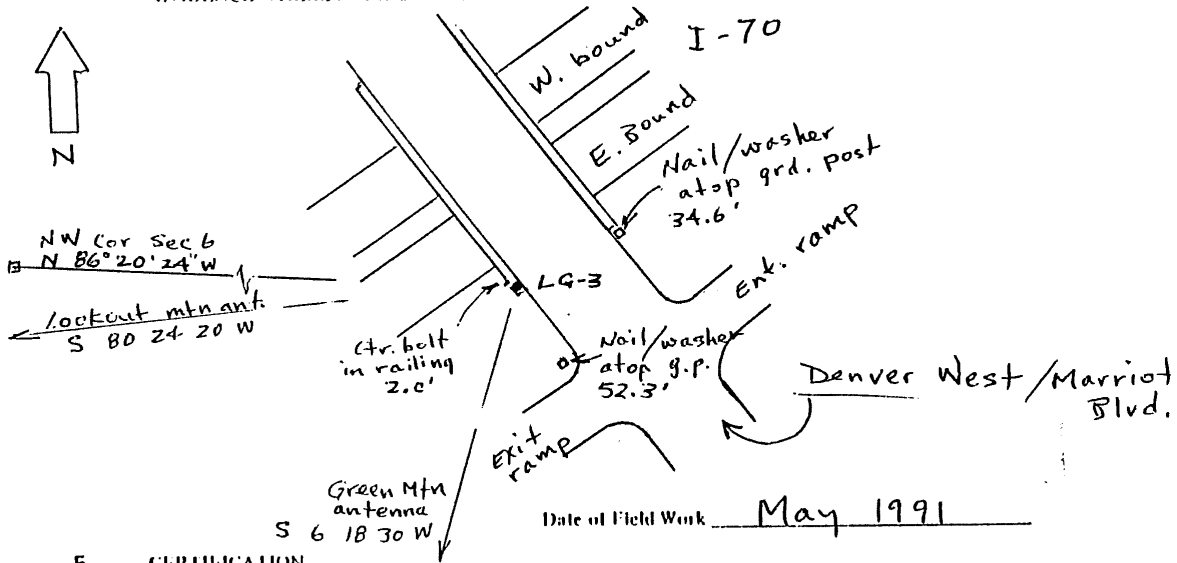 I-70
W. bound
E. Bound
Nail/washer
atop grd. post
34.6'
N
Ent. ramp
NW Cor Sec 6
N 86°20'24"W
Lookout mtn ant.
S 80 24 20 W
LG-3
Ctr. bolt
in railing
2.0'
Nail/washer
atop g.p.
52.3'
Denver West/Marriot
Blvd.
Exit
ramp
Green Mtn
antenna
S 6 18 30 W
Date of Field Work May 1991
CERTIFICATION